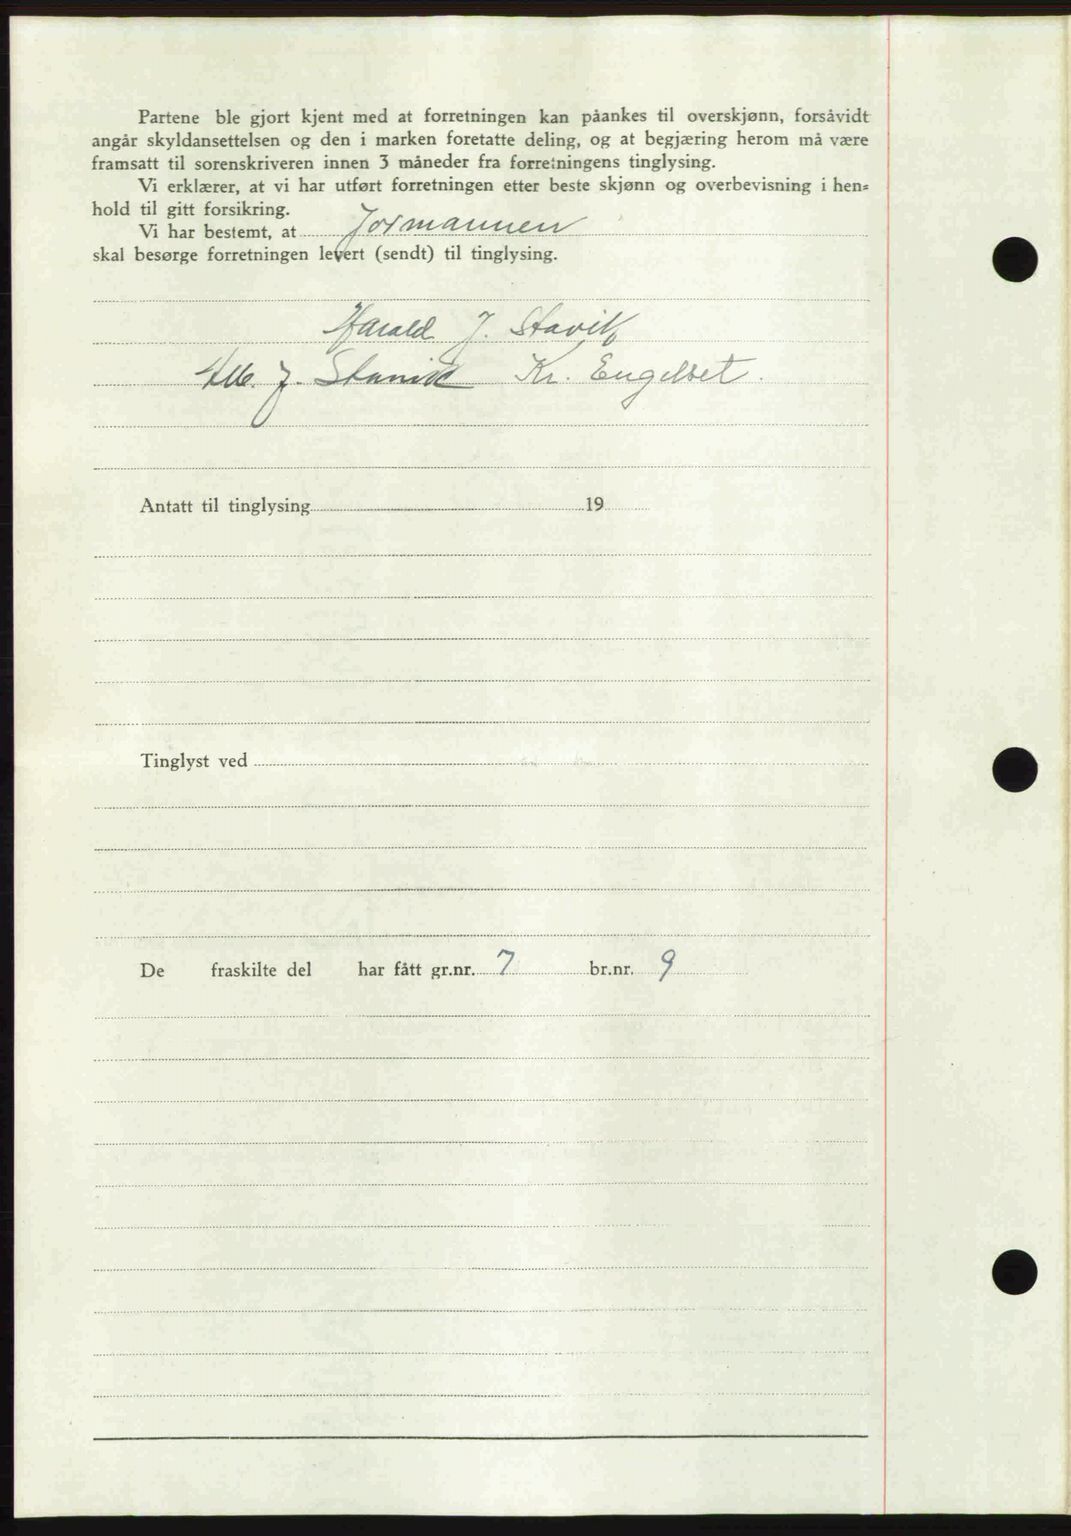 Partene ble gjort kjent med at forretningen kan påankes til overskjønn, forsåvidt
angår skyldansettelsen og den i marken foretatte deling, og at begjæring herom må være
framsatt til sorenskriveren innen 3 måneder fra forretningens tinglysing.
Vi erklærer, at vi har utført forretningen etter beste skjønn og overbevisning i hen=
hold til gitt forsikring.
Vi har bestemt, at Formannen
skal besørge forretningen levert (sendt) til tinglysing.
Harald J. Stavik
J. Stavik Kr. Engelset.
Antatt til tinglysing 19
Tinglyst ved
De fraskilte del har fått gr.nr. 7 br.nr. 9